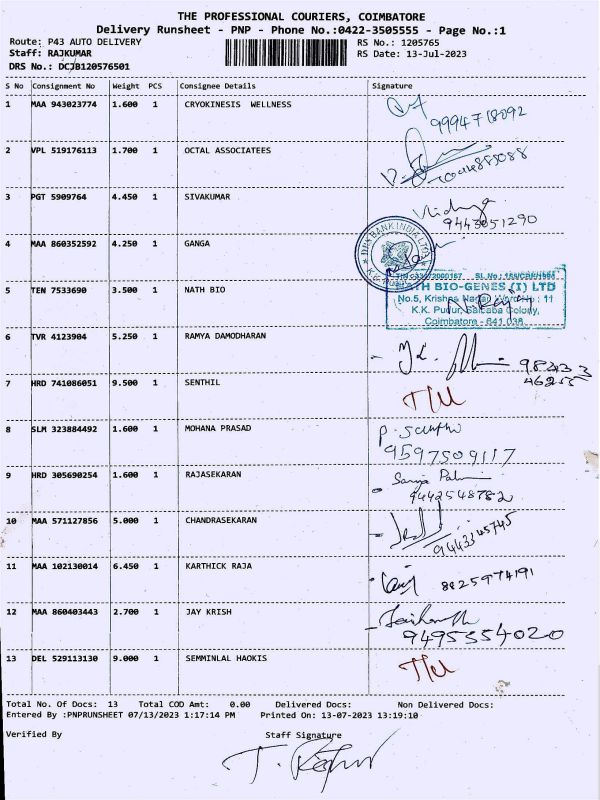 THE PROFESSIONAL COURIERS, COIMBATORE
Delivery Runsheet - PNP - Phone No.:0422-3505555 - Page No.:1
Route: P43 AUTO DELIVERY RS No.: 1205765
Staff: RAJKUMAR RS Date: 13-Jul-2023
DRS No.: DCJB120576501
S No Consignment No Weight PCS Consignee Details Signature
1 MAA 943023774 1.600 1 CRYOKINESIS WELLNESS
9994718092
2 VPL 519176113 1.700 1 OCTAL ASSOCIATEES
3 PGT 5909764 4.450 1 SIVAKUMAR
9443051290
4 MAA 860352592 4.250 1 GANGA
5 TEN 7533690 3.500 1 NATH BIO
NATH BIO-GENES (I) LTD
No.5, Krishna Nagar Word No : 11
K.K. Pudur, Saibaba Colony,
Coimbatore - 641 038
6 TVR 4123904 5.250 1 RAMYA DAMODHARAN
98433
46255
7 HRD 741086051 9.500 1 SENTHIL
8 SLM 323884492 1.600 1 MOHANA PRASAD
9597509117
9 HRD 305690254 1.600 1 RAJASEKARAN
9442548782
10 MAA 571127856 5.000 1 CHANDRASEKARAN
9443345745
11 MAA 102130014 6.450 1 KARTHICK RAJA
8825974191
12 MAA 860403443 2.700 1 JAY KRISH
9495554020
13 DEL 529113130 9.000 1 SEMMINLAL HAOKIS
Total No. Of Docs: 13 Total COD Amt: 0.00 Delivered Docs: Non Delivered Docs:
Entered By :PNPRUNSHEET 07/13/2023 1:17:14 PM Printed On: 13-07-2023 13:19:10
Verified By Staff Signature